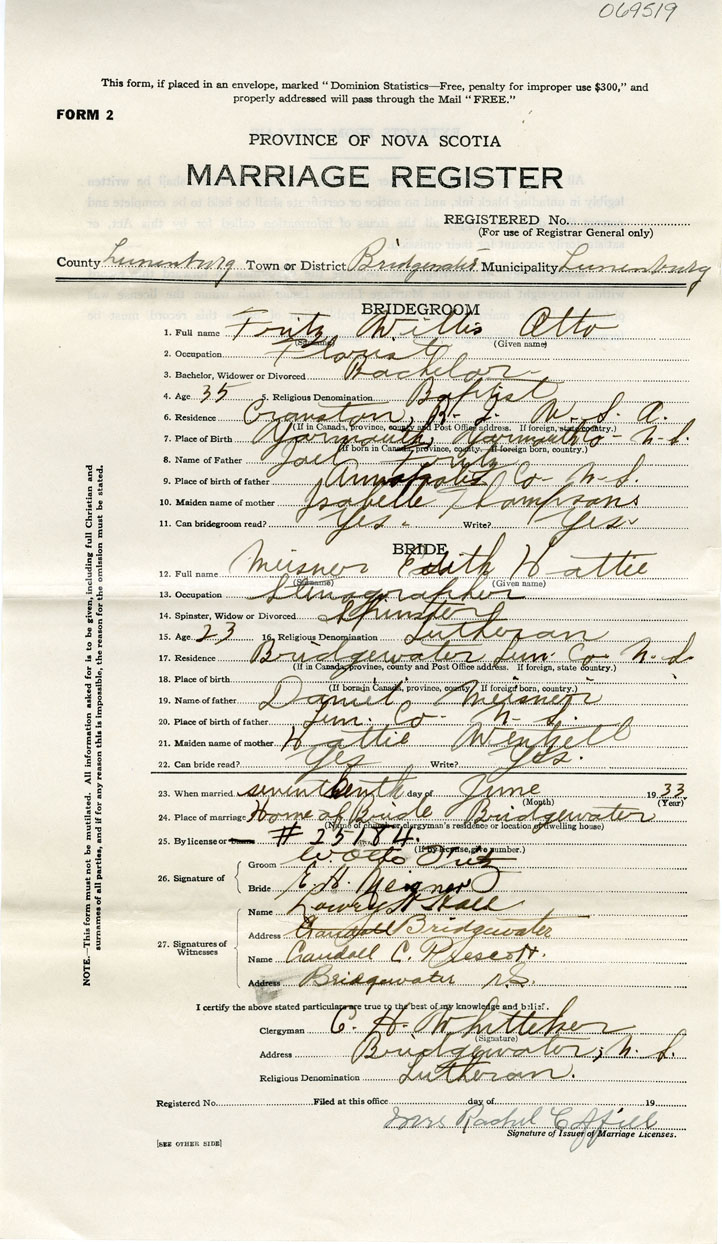 069519
This form, if placed in an envelope, marked "Dominion Statistics—Free, penalty for improper use $300," and
properly addressed will pass through the Mail "FREE."
FORM 2
PROVINCE OF NOVA SCOTIA
MARRIAGE REGISTER
REGISTERED No.
(For use of Registrar General only)
County Lunenburg Town or District Bridgewater Municipality Lunenburg
BRIDEGROOM
1. Full name Fritz Willis Otto
(Surname) (Given name)
2. Occupation Florist
3. Bachelor, Widower or Divorced Bachelor
4. Age 35 5. Religious Denomination Baptist
6. Residence Cranston, R. I. U. S. A.
(If in Canada, province, county and Post Office address. If foreign, state country.)
7. Place of Birth Yarmouth, Yarmouth Co- N. S.
(If born in Canada, province, county. If foreign born, country.)
8. Name of Father Joel
9. Place of birth of father Annapolis Co- N. S.
10. Maiden name of mother Isabelle Thompson
11. Can bridegroom read? Yes Write? Yes
BRIDE
12. Full name Meisner Edith Hattie
(Surname) (Given name)
13. Occupation Stenographer
14. Spinster, Widow or Divorced Spinster
15. Age 23 16. Religious Denomination Lutheran
17. Residence Bridgewater Lun. Co. N. S.
(If in Canada, province, county and Post Office address. If foreign, state country.)
18. Place of birth
(If born in Canada, province, county. If foreign born, country.)
19. Name of father Daniel Meisner
20. Place of birth of father Lun. Co- N. S.
21. Maiden name of mother Hattie Wentzell
22. Can bride read? Yes Write? Yes.
23. When married seventeenth day of June 1933
(Month) (Year)
24. Place of marriage Home of Bride Bridgewater
(Name of church or clergyman's residence or location of dwelling house)
25. By license or # 25184.
(If by license, give number.)
26. Signature of
Groom W Otto Fritz
Bride E. H. Meisner
27. Signatures of Witnesses
Name Hall
Address Bridgewater
Name Crandall C. Prescott.
Address Bridgewater N.S.
I certify the above stated particulars are true to the best of my knowledge and belief.
Clergyman C. H. Whitteker
(Signature)
Address Bridgewater, N. S.
Religious Denomination Lutheran.
Registered No. Filed at this office day of 19
Mrs Rachel
Signature of Issuer of Marriage Licenses.
[SEE OTHER SIDE]
NOTE.—This form must not be mutilated. All information asked for is to be given, including full Christian and
surnames of all parties, and if for any reason this is impossible, the reason for the omission must be stated.